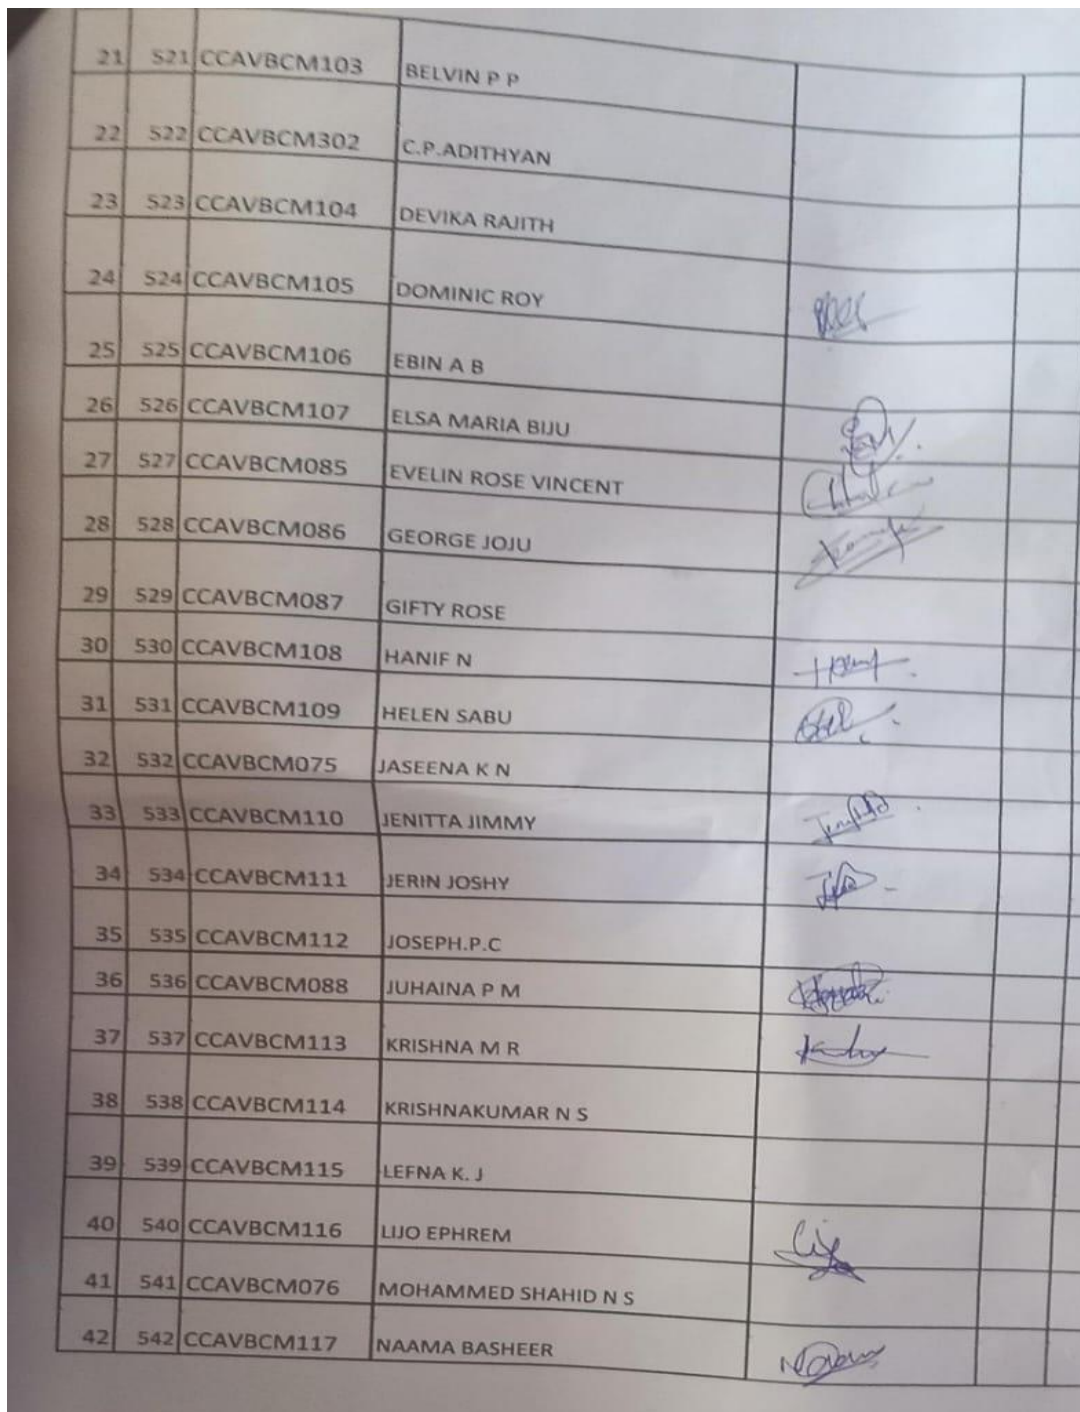 21 521 CCAVBCM103 BELVIN P P
22 522 CCAVBCM302 C.P.ADITHYAN
23 523 CCAVBCM104 DEVIKA RAJITH
24 524 CCAVBCM105 DOMINIC ROY
25 525 CCAVBCM106 EBIN A B
26 526 CCAVBCM107 ELSA MARIA BIJU
27 527 CCAVBCM085 EVELIN ROSE VINCENT
28 528 CCAVBCM086 GEORGE JOJU
29 529 CCAVBCM087 GIFTY ROSE
30 530 CCAVBCM108 HANIF N
31 531 CCAVBCM109 HELEN SABU
32 532 CCAVBCM075 JASEENA K N
33 533 CCAVBCM110 JENITTA JIMMY
34 534 CCAVBCM111 JERIN JOSHY
35 535 CCAVBCM112 JOSEPH.P.C
36 536 CCAVBCM088 JUHAINA P M
37 537 CCAVBCM113 KRISHNA M R
38 538 CCAVBCM114 KRISHNAKUMAR N S
39 539 CCAVBCM115 LEFNA K. J
40 540 CCAVBCM116 LIJO EPHREM
41 541 CCAVBCM076 MOHAMMED SHAHID N S
42 542 CCAVBCM117 NAAMA BASHEER